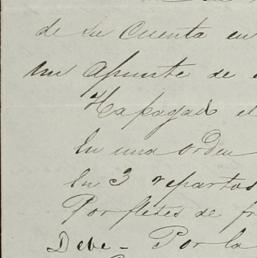 de su Cuenta en
un Apunte de
Ha pagado el
En una orden
En 3 repartos
Por fletes de fr
Debe - Por la